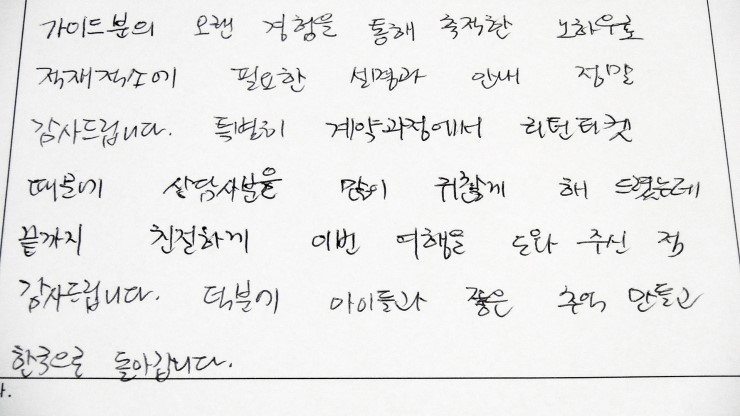 가이드분의 오랜 경험을 통해 축적한 노하우로
적재적소에 필요한 설명과 안내 정말
감사드립니다. 특별히 계약과정에서 리턴티켓
때문에 상담사분을 많이 귀찮게 해 드렸는데
끝까지 친절하게 이번 여행을 도와 주신 점
감사드립니다. 덕분에 아이들과 좋은 추억 만들고
한국으로 돌아갑니다.